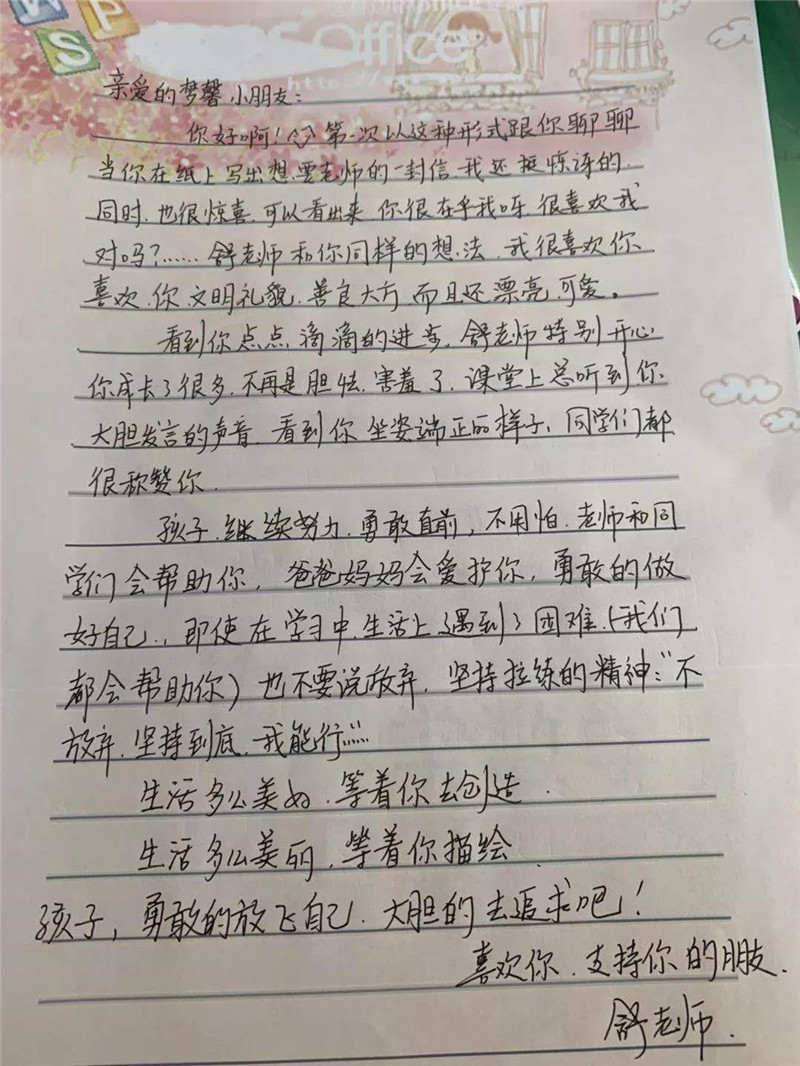 W P S
Office
http://w
亲爱的梦馨小朋友:
你好啊!第一次以这种形式跟你聊聊
当你在纸上写出想要老师的一封信,我还挺惊讶的.
同时,也很惊喜,可以看出来,你很在乎我呀,很喜欢我
对吗?……舒老师和你同样的想法,我很喜欢你
喜欢你文明礼貌、善良大方,而且还漂亮可爱。
看到你点点滴滴的进步,舒老师特别开心
你成长了很多,不再是胆怯、害羞了,课堂上总听到你
大胆发言的声音,看到你坐姿端正的样子,同学们都
很称赞你.
孩子,继续努力,勇敢直前,不用怕.老师和同
学们会帮助你,爸爸妈妈会爱护你,勇敢的做
好自己.,即使在学习中、生活上遇到了困难,(我们
都会帮助你)也不要说放弃,坚持拉练的精神:“不
放弃,坚持到底,我能行……
生活多么美好,等着你去创造.
生活多么美丽,等着你描绘.
孩子,勇敢的放飞自己,大胆的去追求吧!
喜欢你、支持你的朋友.
舒老师.